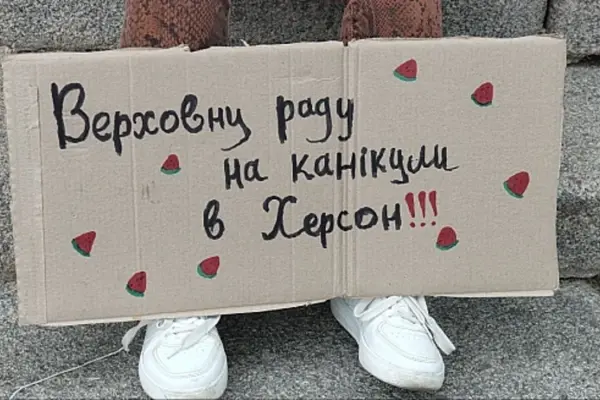 Верховну раду
на канікули
в Херсон!!!